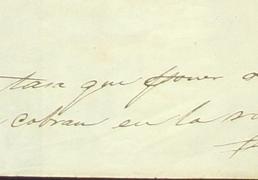 tasa que poner
cobran en la